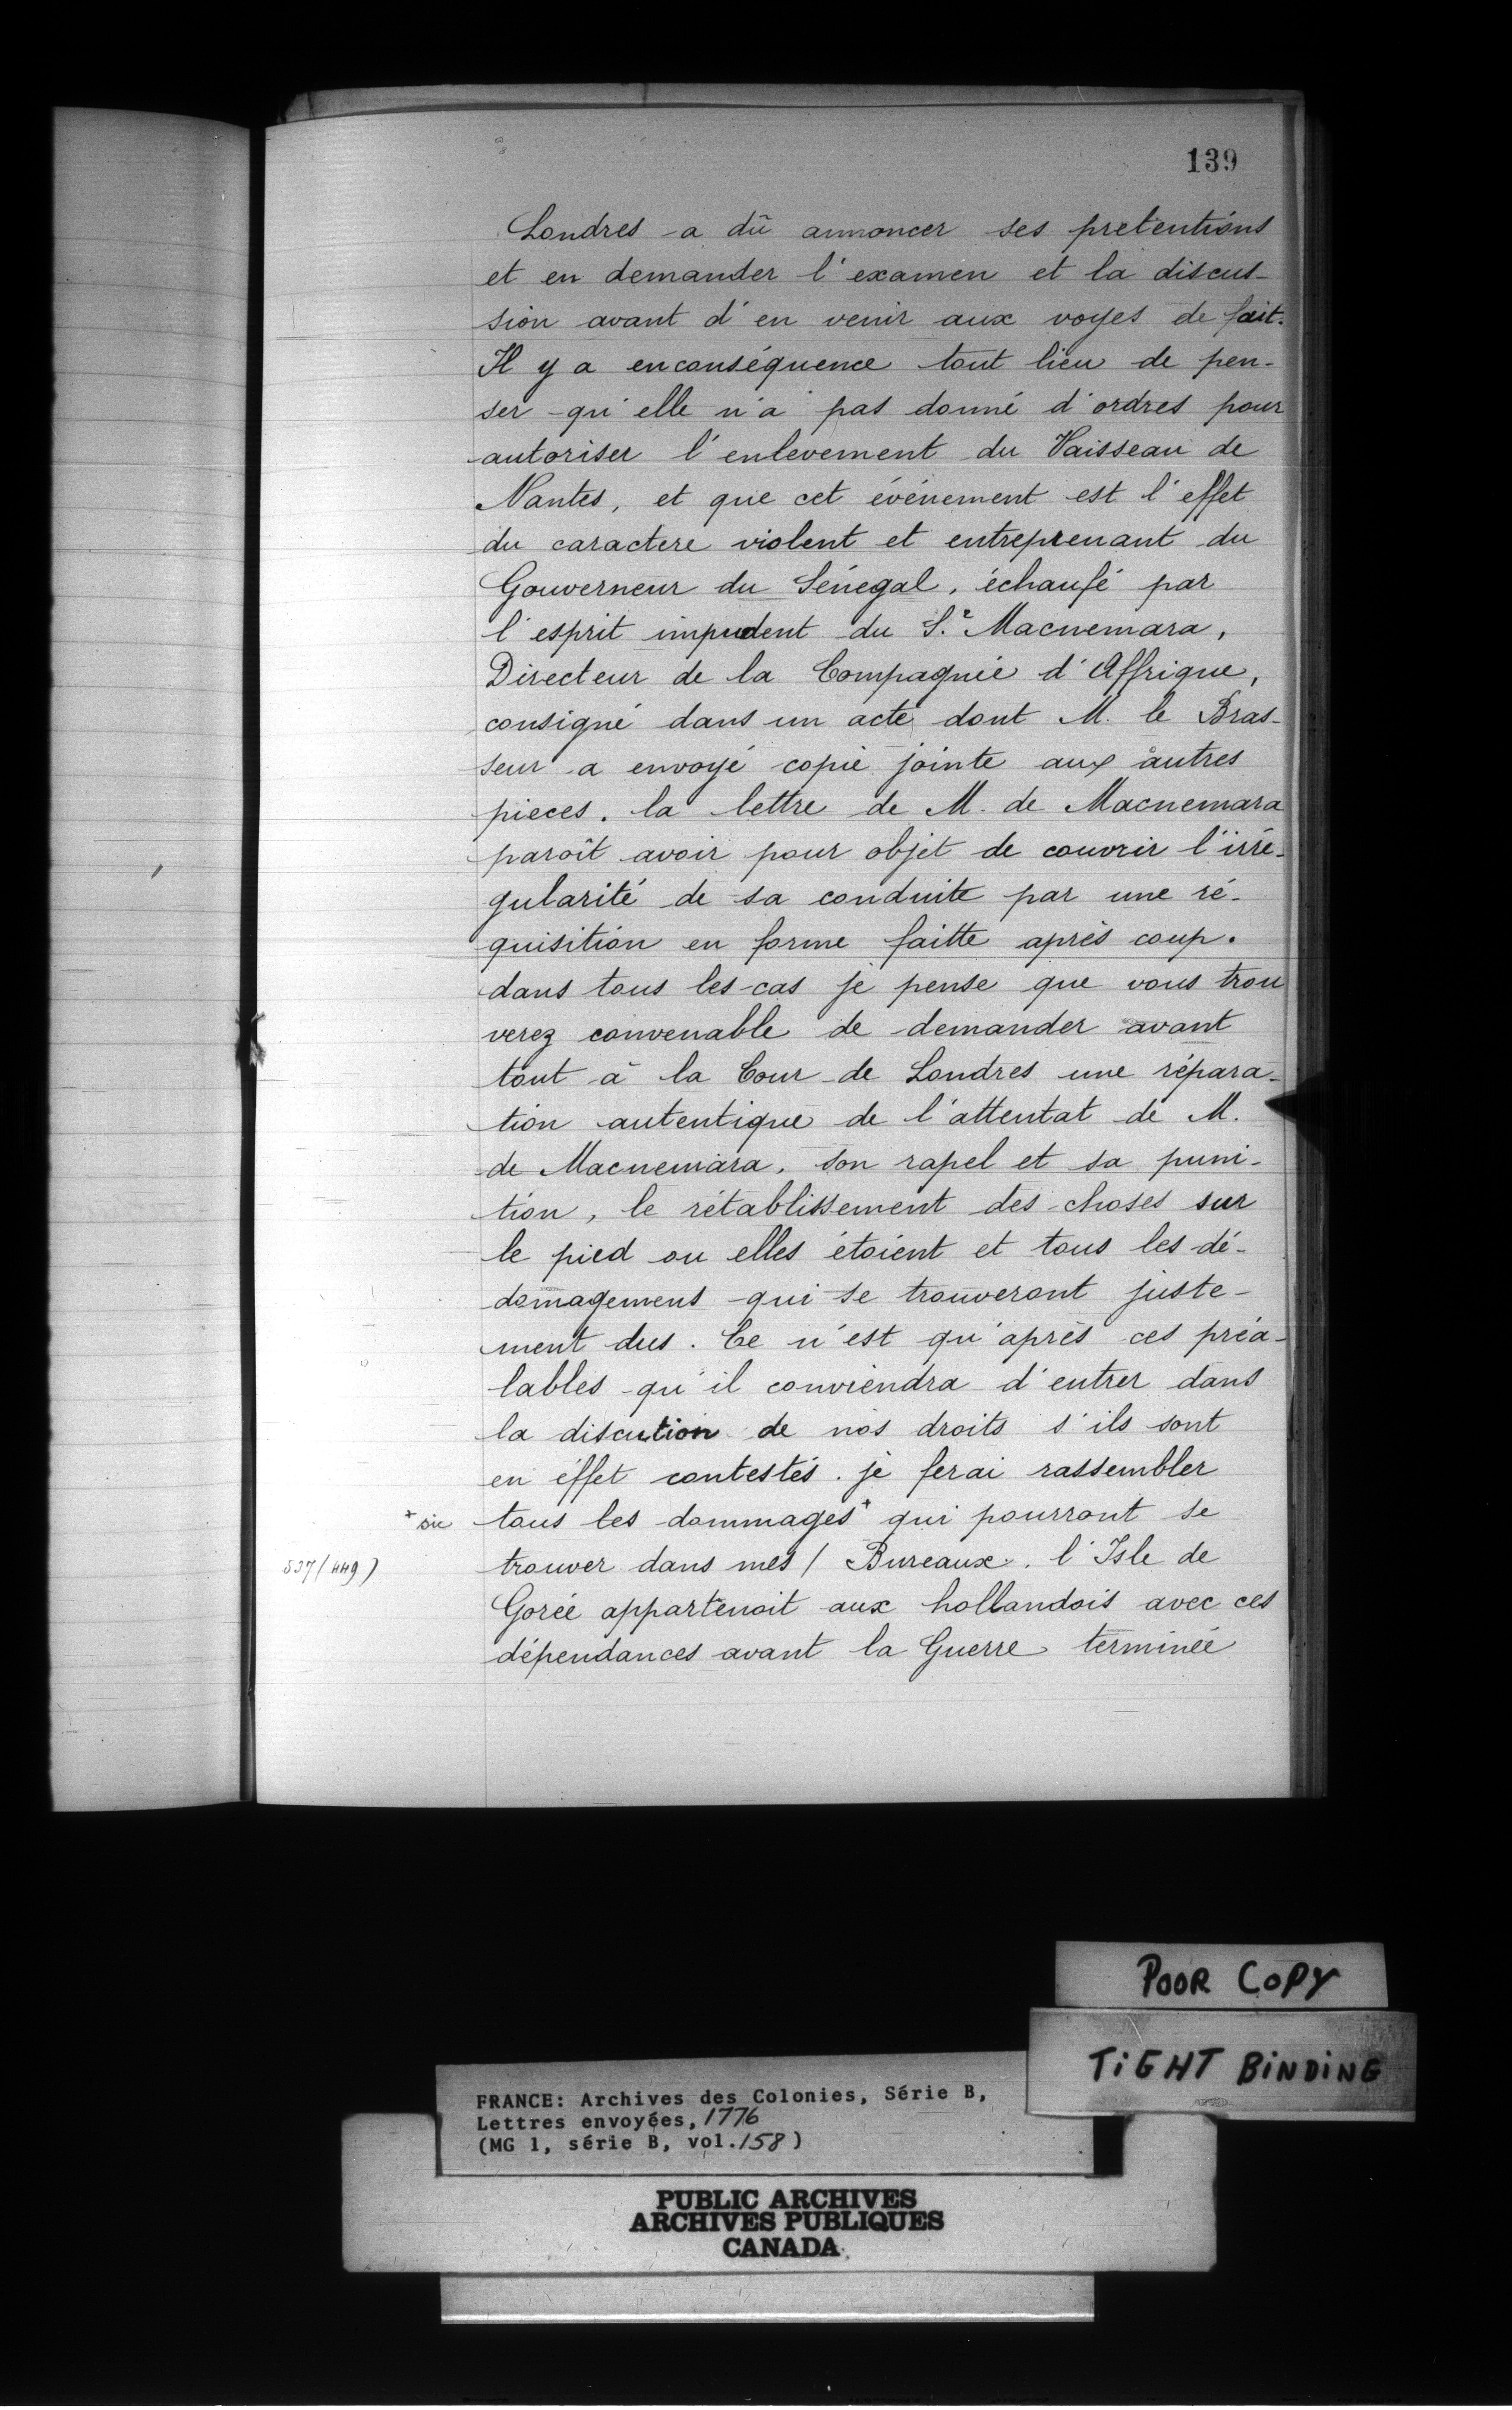 139
Londres a dû annoncer ses pretentions
et en demander l'examen et la discus-
sion avant d'en venir aux voyes de fait.
Il y a enconséquence tout lieu de pen-
ser qu'elle n'a pas donné d'ordres pour
autoriser l'enlevement du Vaisseau de
Nantes, et que cet événement est l'effet
du caractere violent et entreprenant du
Gouverneur du Sénegal, échaufé par
l'esprit impudent du S.r Macnemara,
Directeur de la Compagnie d'Affrique,
consigné dans un acte dont M. le Bras-
seur a envoyé copie jointe aux autres
pieces. la lettre de M. de Macnemara
paroît avoir pour objet de couvrir l'irré-
gularité de sa conduite par une ré-
quisition en forme faitte après coup.
dans tous les cas je pense que vous trou
verez convenable de demander avant
tout à la Cour de Londres une répara-
tion autentique de l'attentat de M.
de Macnemara, son rapel et sa puni-
tion, le rétablissement des choses sur
le pied ou elles étoient et tous les dé-
domagemens qui se trouveront juste-
ment dus. Ce n'est qu'après ces préa-
lables qu'il conviendra d'entrer dans
la discution de nos droits s'ils sont
en éffet contestés. je ferai rassembler
* sic tous les dommages* qui pourront se
537 (449) trouver dans mes / Bureaux. l'Isle de
Gorée appartenoit aux hollandois avec ces
dépendances avant la Guerre terminée
POOR COPY
TIGHT BINDING
FRANCE: Archives des Colonies, Série B,
Lettres envoyées, 1776
(MG 1, série B, vol. 158)
PUBLIC ARCHIVES
ARCHIVES PUBLIQUES
CANADA